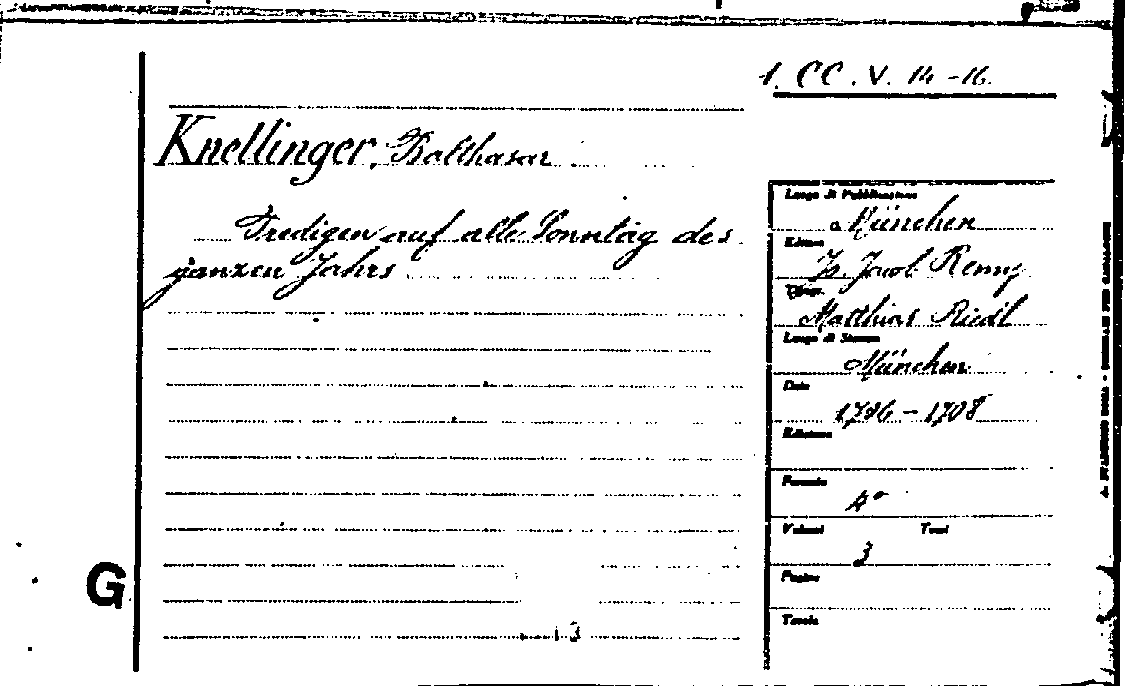 1. CC. V. 14-16.
Knellinger, Balthasar
Predigen auf alle Sonntäg des
ganzen Jahrs
Luogo di Pubblicazione
a München
Editore
Jo. Jacob Remy
Tipogr.
Matthias Riedl
Luogo di Stampa
München
Data
1706-1708
Edizione
Formato
4°
Volumi Tomi
3
Pagine
Tavole
G